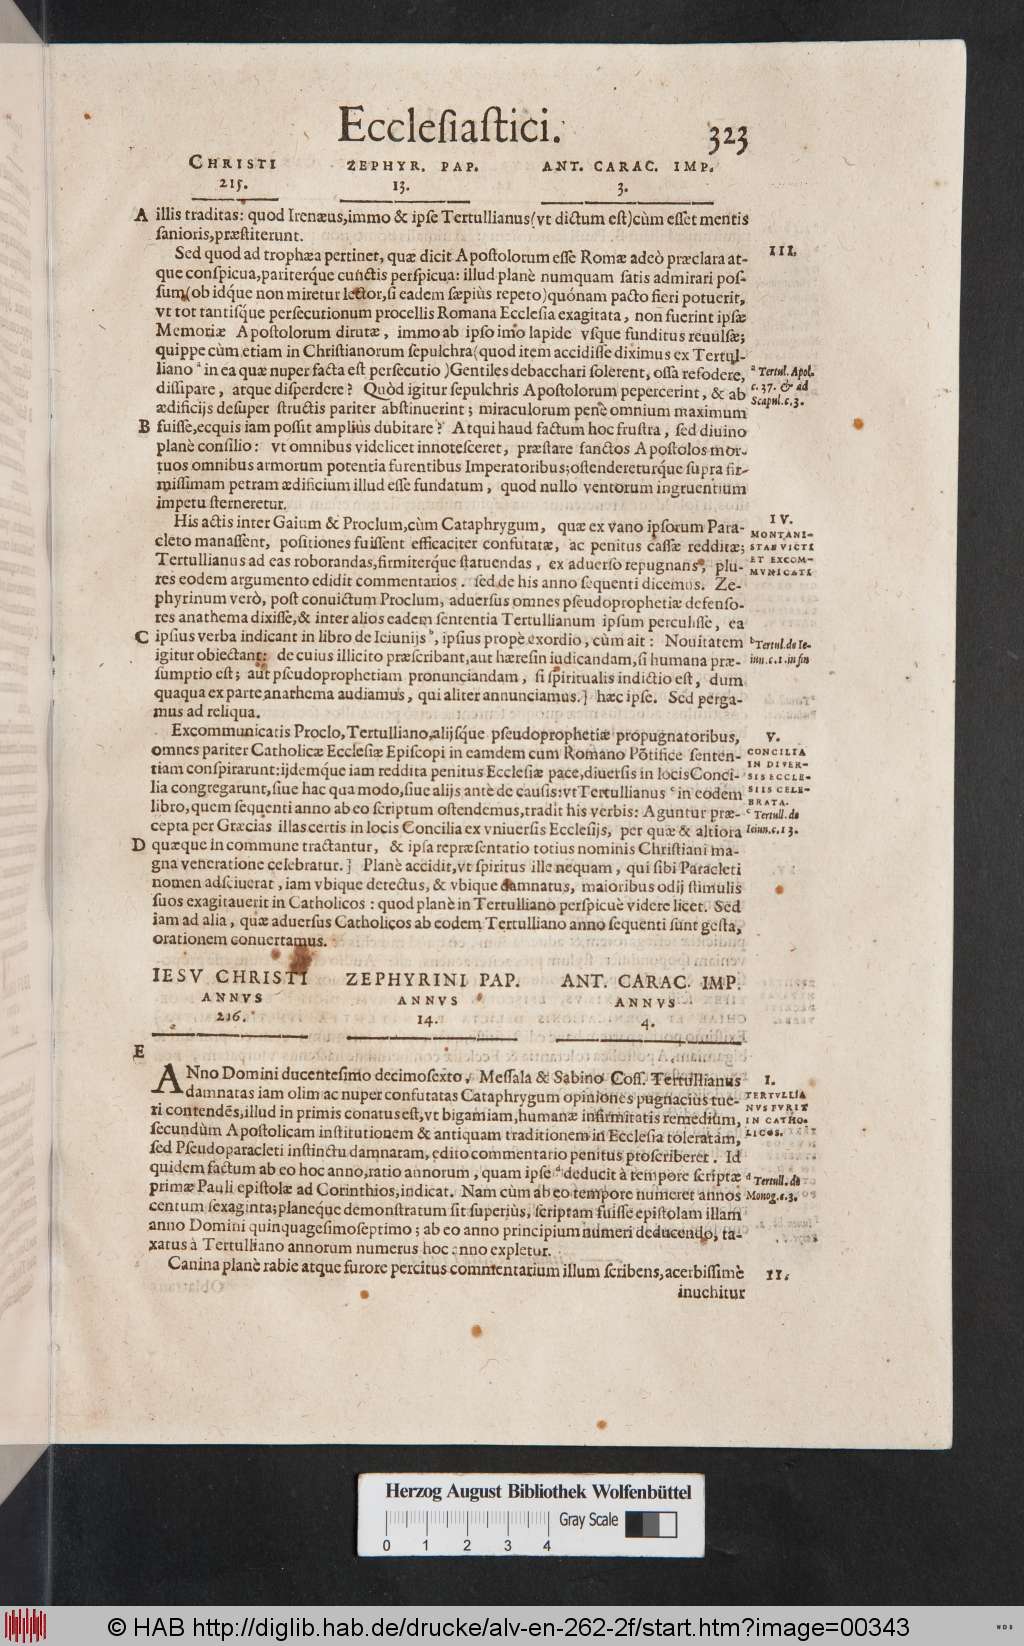 Ecclesiastici. 323
CHRISTI ZEPHYR. PAP. ANT. CARAC. IMP.
215. 13. 3.
A illis traditas: quod Irenæus,immo & ipse Tertullianus(vt dictum est)cùm esset mentis
sanioris,præstiterunt.
Sed quod ad trophæa pertinet, quæ dicit Apostolorum esse Romæ adeò præclara at- III.
que conspicua,pariterq́ue cunctis perspicua: illud planè numquam satis admirari pos-
sum(ob idq́ue non miretur lector,si eadem sæpiùs repeto)quónam pacto fieri potuerit,
vt tot tantisq́ue persecutionum procellis Romana Ecclesia exagitata, non fuerint ipsæ
Memoriæ Apostolorum dirutæ, immo ab ipso imo lapide vsque funditus reuulsæ;
quippe cùm etiam in Christianorum sepulchra(quod item accidisse diximus ex Tertul-
liano ª in ea quæ nuper facta est persecutio )Gentiles debacchari solerent, ossa refodere, ª Tertul. Apol.
dissipare, atque disperdere? Quòd igitur sepulchris Apostolorum pepercerint, & ab c. 37. & ad
ædificijs desuper structis pariter abstinuerint; miraculorum penè omnium maximum Scapul.c.3.
B fuisse,ecquis iam possit ampliùs dubitare? Atqui haud factum hoc frustra, sed diuino
planè consilio: vt omnibus videlicet innotesceret, præstare sanctos Apostolos mor-
tuos omnibus armorum potentia furentibus Imperatoribus;ostendereturq́ue supra fir-
missimam petram ædificium illud esse fundatum, quod nullo ventorum ingruentium
impetu sterneretur.
His actis inter Gaium & Proclum,cùm Cataphrygum, quæ ex vano ipsorum Para- IV.
cleto manassent, positiones fuissent efficaciter confutatæ, ac penitus cassæ redditæ; MONTANI-
Tertullianus ad eas roborandas,firmiterq́ue statuendas, ex aduerso repugnans, plu- STAE VICTI
res eodem argumento edidit commentarios. sed de his anno sequenti dicemus. Ze- ET EXCOM-
phyrinum verò, post conuictum Proclum, aduersus omnes pseudoprophetiæ defenso- MVNICATI
res anathema dixisse,& inter alios eadem sententia Tertullianum ipsum perculisse, ea
C ipsius verba indicant in libro de Ieiunijs ᵇ, ipsius propè exordio, cùm ait: Nouitatem ᵇ Tertul. de Ie-
igitur obiectant: de cuius illicito præscribant,aut hæresin iudicandam,si humana præ- iun. c. 1. in fin
sumptio est; aut pseudoprophetiam pronunciandam, si spiritualis indictio est, dum
quaqua ex parte anathema audiamus, qui aliter annunciamus.] hæc ipse. Sed perga-
mus ad reliqua.
Excommunicatis Proclo,Tertulliano,alijsq́ue pseudoprophetiæ propugnatoribus, V.
omnes pariter Catholicæ Ecclesiæ Episcopi in eamdem cum Romano Põtifice senten- CONCILIA
tiam conspirarunt:ijdemq́ue iam reddita penitus Ecclesiæ pace,diuersis in locis Conci- IN DIVER-
lia congregarunt,siue hac qua modo,siue alijs antè de causis:vt Tertullianus ᶜ in eodem SIS ECCLE-
libro,quem sequenti anno ab eo scriptum ostendemus,tradit his verbis: Aguntur præ- SIIS CELE-
BRATA.
cepta per Græcias illas certis in locis Concilia ex vniuersis Ecclesijs, per quæ & altiora ᶜ Tertull. de
D quæque in commune tractantur, & ipsa repræsentatio totius nominis Christiani ma- Ieiun. c. 13.
gna veneratione celebratur.] Planè accidit,vt spiritus ille nequam, qui sibi Paracleti
nomen adsciuerat, iam vbique detectus, & vbique damnatus, maioribus odij stimulis
suos exagitauerit in Catholicos: quod planè in Tertulliano perspicuè videre licet. Sed
iam ad alia, quæ aduersus Catholicos ab eodem Tertulliano anno sequenti sunt gesta,
orationem conuertamus.
IESV CHRISTI ZEPHYRINI PAP. ANT. CARAC. IMP.
ANNVS ANNVS ANNVS
216. 14. 4.
E
ANno Domini ducentesimo decimosexto, Messala & Sabino Coss. Tertullianus I.
damnatas iam olim ac nuper confutatas Cataphrygum opiniones pugnaciùs tue- TERTVLLIA
ri contendēs,illud in primis conatus est,vt bigamiam,humanæ infirmitatis remedium, NVS FVRIT
secundùm Apostolicam institutionem & antiquam traditionem in Ecclesia toleratam, IN CATHO-
sed Pseudoparacleti instinctu damnatam, edito commentario penitus proscriberet. Id LICOS.
quidem factum ab eo hoc anno,ratio annorum, quam ipse ᵈ deducit à tempore scriptæ ᵈ Tertull. de
primæ Pauli epistolæ ad Corinthios,indicat. Nam cùm ab eo tempore numeret annos Monog. c. 3.
centum sexaginta;planeque demonstratum sit superiùs, scriptam fuisse epistolam illam
anno Domini quinquagesimoseptimo; ab eo anno principium numeri deducendo, ta-
xatus à Tertulliano annorum numerus hoc anno expletur.
Canina planè rabie atque furore percitus commentarium illum scribens,acerbissimè II.
inuehitur
Herzog August Bibliothek Wolfenbüttel
Gray Scale
0 1 2 3 4
© HAB http://diglib.hab.de/drucke/alv-en-262-2f/start.htm?image=00343